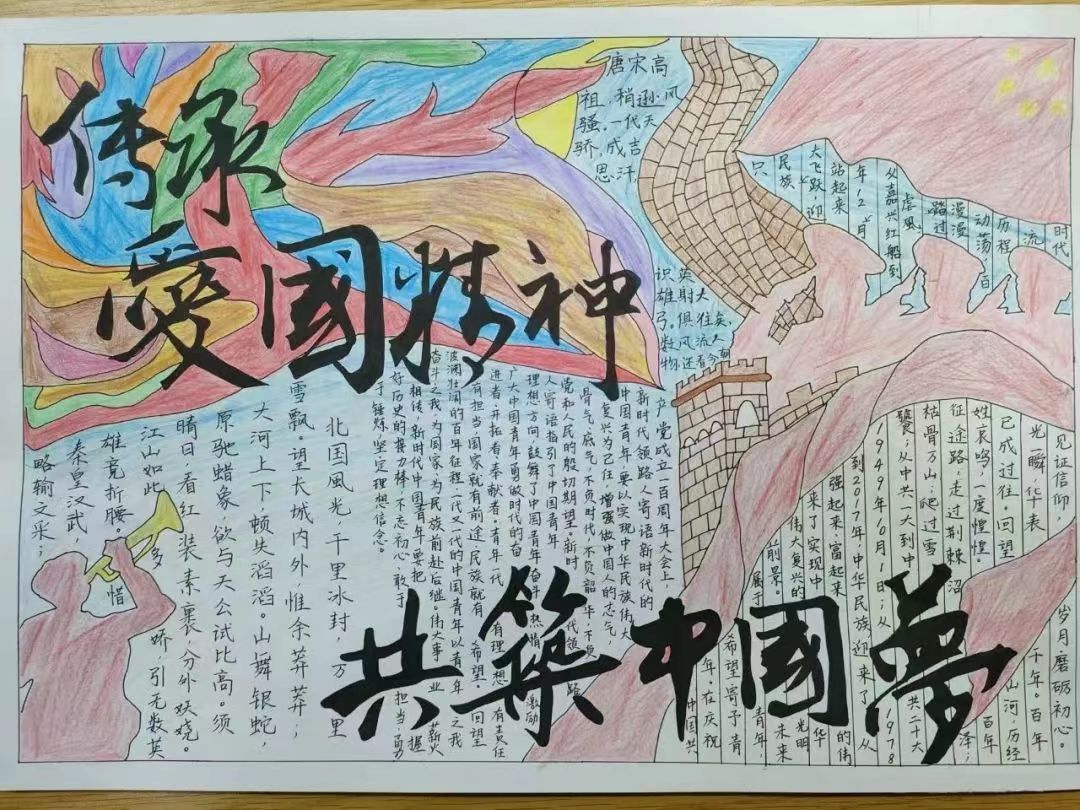 传承
愛國精神
共築中國夢
北国風光千里冰封,万里
雪飘。望长城内外,惟余莽莽;
大河上下顿失滔滔。山舞银蛇,
原驰蜡象欲与天公试比高。须
晴日看红装素裹分外妖娆。
江山如此多娇引无数英
雄竞折腰。惜
秦皇汉武,
略输文采;
唐宋高
祖,稍逊风
骚。一代天
骄,成吉
思汗
只
识
弓。
英雄
射
大
俱往矣,
数风流人
物还看今朝
时代
流
历程
动荡,百
漫漫
踏过
虐風
从嘉兴红船到
年12月
站起来
大飞跃,迎
民族
见证信仰,岁月磨砺初心。
光一瞬,华表千年。百年
已成过往。回望山河,历经
姓哀鸣,一度惶惶。百年
征途路,走过荆棘沼泽;
枯骨万山,爬过雪
从中共一大到中共二十大
1949年10月1日;从1978
到2017年中华民族迎来了从
强起来,富起来的伟
来了实现中华
伟大复兴的光明
前景。未来
属于青年,
希望寄予青
年,在庆祝
中国共
产党成立一百周年大会上,
新时代领路人寄语新时代的
中国青年要以实现中华民族伟大
复兴为己任,增强做中国人的志气,
骨气、底气,不负时代,不负韶华,不负
党和人民的殷切期望。新时代领路
人寄语指引了中国青年
理想方向,鼓舞了中国青年奋斗热情,激励
广大中国青年勇做时代的奋
进者、开拓者、奉献者。青年一代有理想、有责任
有担当,国家就有前途,民族就有希望。回望
波澜壮阔的百年征程,一代又一代的中国青年以青年之我
奋斗之我,为国家为民族前赴后继。伟大事业薪火
相传,新时代中国青年要把握
好历史的接力棒,不忘初心,敢于担当,勇
于锤炼,坚定理想信念。